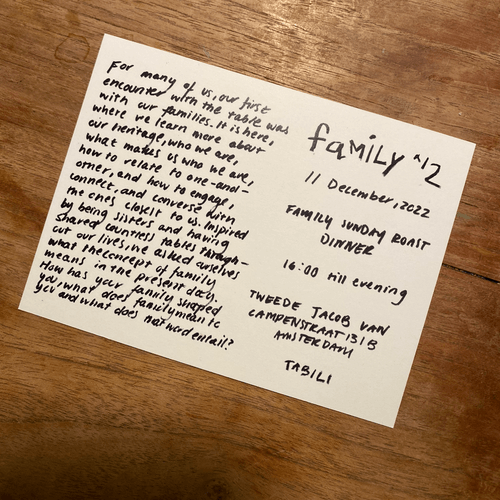 For many of us, our first
encounter with the table was
with our families. It is here,
where we learn more about
our heritage, who we are,
what makes us who we are,
how to relate to one-and-
other, and how to engage,
connect, and converse with
the ones closest to us. Inspired
by being sisters and having
shared countless tables through-
out our lives, we asked ourselves
what the concept of family
means in the present day.
How has your family shaped
you, what does family mean to
you and what does that word entail?
family ^12
11 December, 2022
FAMILY SUNDAY ROAST
DINNER
16:00 till evening
TWEEDE JACOB VAN
CAMPENSTRAAT 131B
AMSTERDAM
TABILI